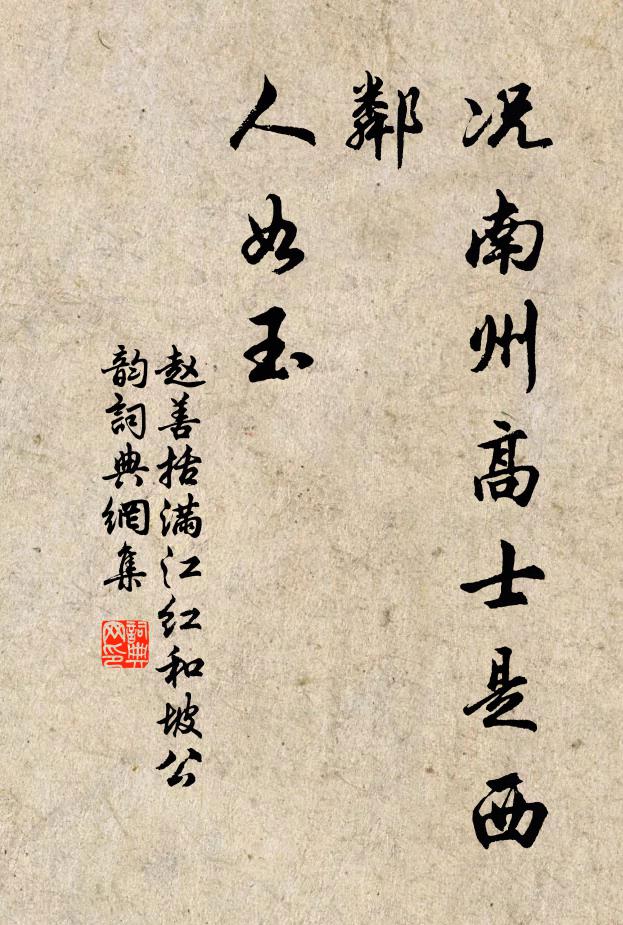 况南州高士是西
鄰
人如玉
赵善括满江红和坡公
韵词典網集
詞典
网印